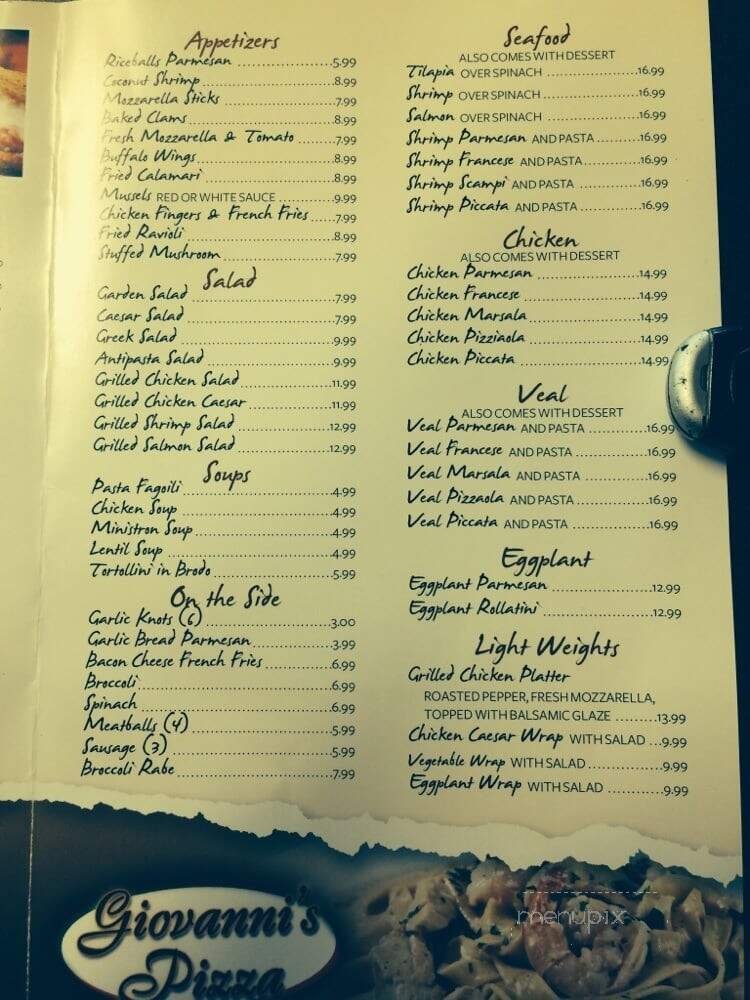 Appetizers
Riceballs Parmesan ..................5.99
Coconut Shrimp ..................8.99
Mozzarella Sticks ..................7.99
Baked Clams ..................8.99
Fresh Mozzarella & Tomato ..........7.99
Buffalo Wings ..................8.99
Fried Calamari ..................8.99
Mussels RED OR WHITE SAUCE ............9.99
Chicken Fingers & French Fries ......7.99
Fried Ravioli ..................8.99
Stuffed Mushroom ..................7.99
Salad
Garden Salad ..................7.99
Caesar Salad ..................7.99
Greek Salad ..................9.99
Antipasta Salad ..................9.99
Grilled Chicken Salad ..................11.99
Grilled Chicken Caesar ..................11.99
Grilled Shrimp Salad ..................12.99
Grilled Salmon Salad ..................12.99
Soups
Pasta Fagoili ..................4.99
Chicken Soup ..................4.99
Ministron Soup ..................4.99
Lentil Soup ..................4.99
Tortollini in Brodo ..................5.99
On the Side
Garlic Knots (6) ..................3.00
Garlic Bread Parmesan ..................3.99
Bacon Cheese French Fries ..................6.99
Broccoli ..................6.99
Spinach ..................6.99
Meatballs (4) ..................5.99
Sausage (3) ..................5.99
Broccoli Rabe ..................7.99
Seafood
ALSO COMES WITH DESSERT
Tilapia OVER SPINACH ..................16.99
Shrimp OVER SPINACH ..................16.99
Salmon OVER SPINACH ..................16.99
Shrimp Parmesan AND PASTA ..........16.99
Shrimp Francese AND PASTA ............16.99
Shrimp Scampi AND PASTA ............16.99
Shrimp Piccata AND PASTA ............16.99
Chicken
ALSO COMES WITH DESSERT
Chicken Parmesan ..................14.99
Chicken Francese ..................14.99
Chicken Marsala ..................14.99
Chicken Pizziaola ..................14.99
Chicken Piccata ..................14.99
Veal
ALSO COMES WITH DESSERT
Veal Parmesan AND PASTA ............16.99
Veal Francese AND PASTA ............16.99
Veal Marsala AND PASTA ............16.99
Veal Pizzaola AND PASTA ............16.99
Veal Piccata AND PASTA ............16.99
Eggplant
Eggplant Parmesan ..................12.99
Eggplant Rollatini ..................12.99
Light Weights
Grilled Chicken Platter
ROASTED PEPPER, FRESH MOZZARELLA,
TOPPED WITH BALSAMIC GLAZE .........13.99
Chicken Caesar Wrap WITH SALAD ...9.99
Vegetable Wrap WITH SALAD ............9.99
Eggplant Wrap WITH SALAD ............9.99
Giovanni's
Pizza
menupix